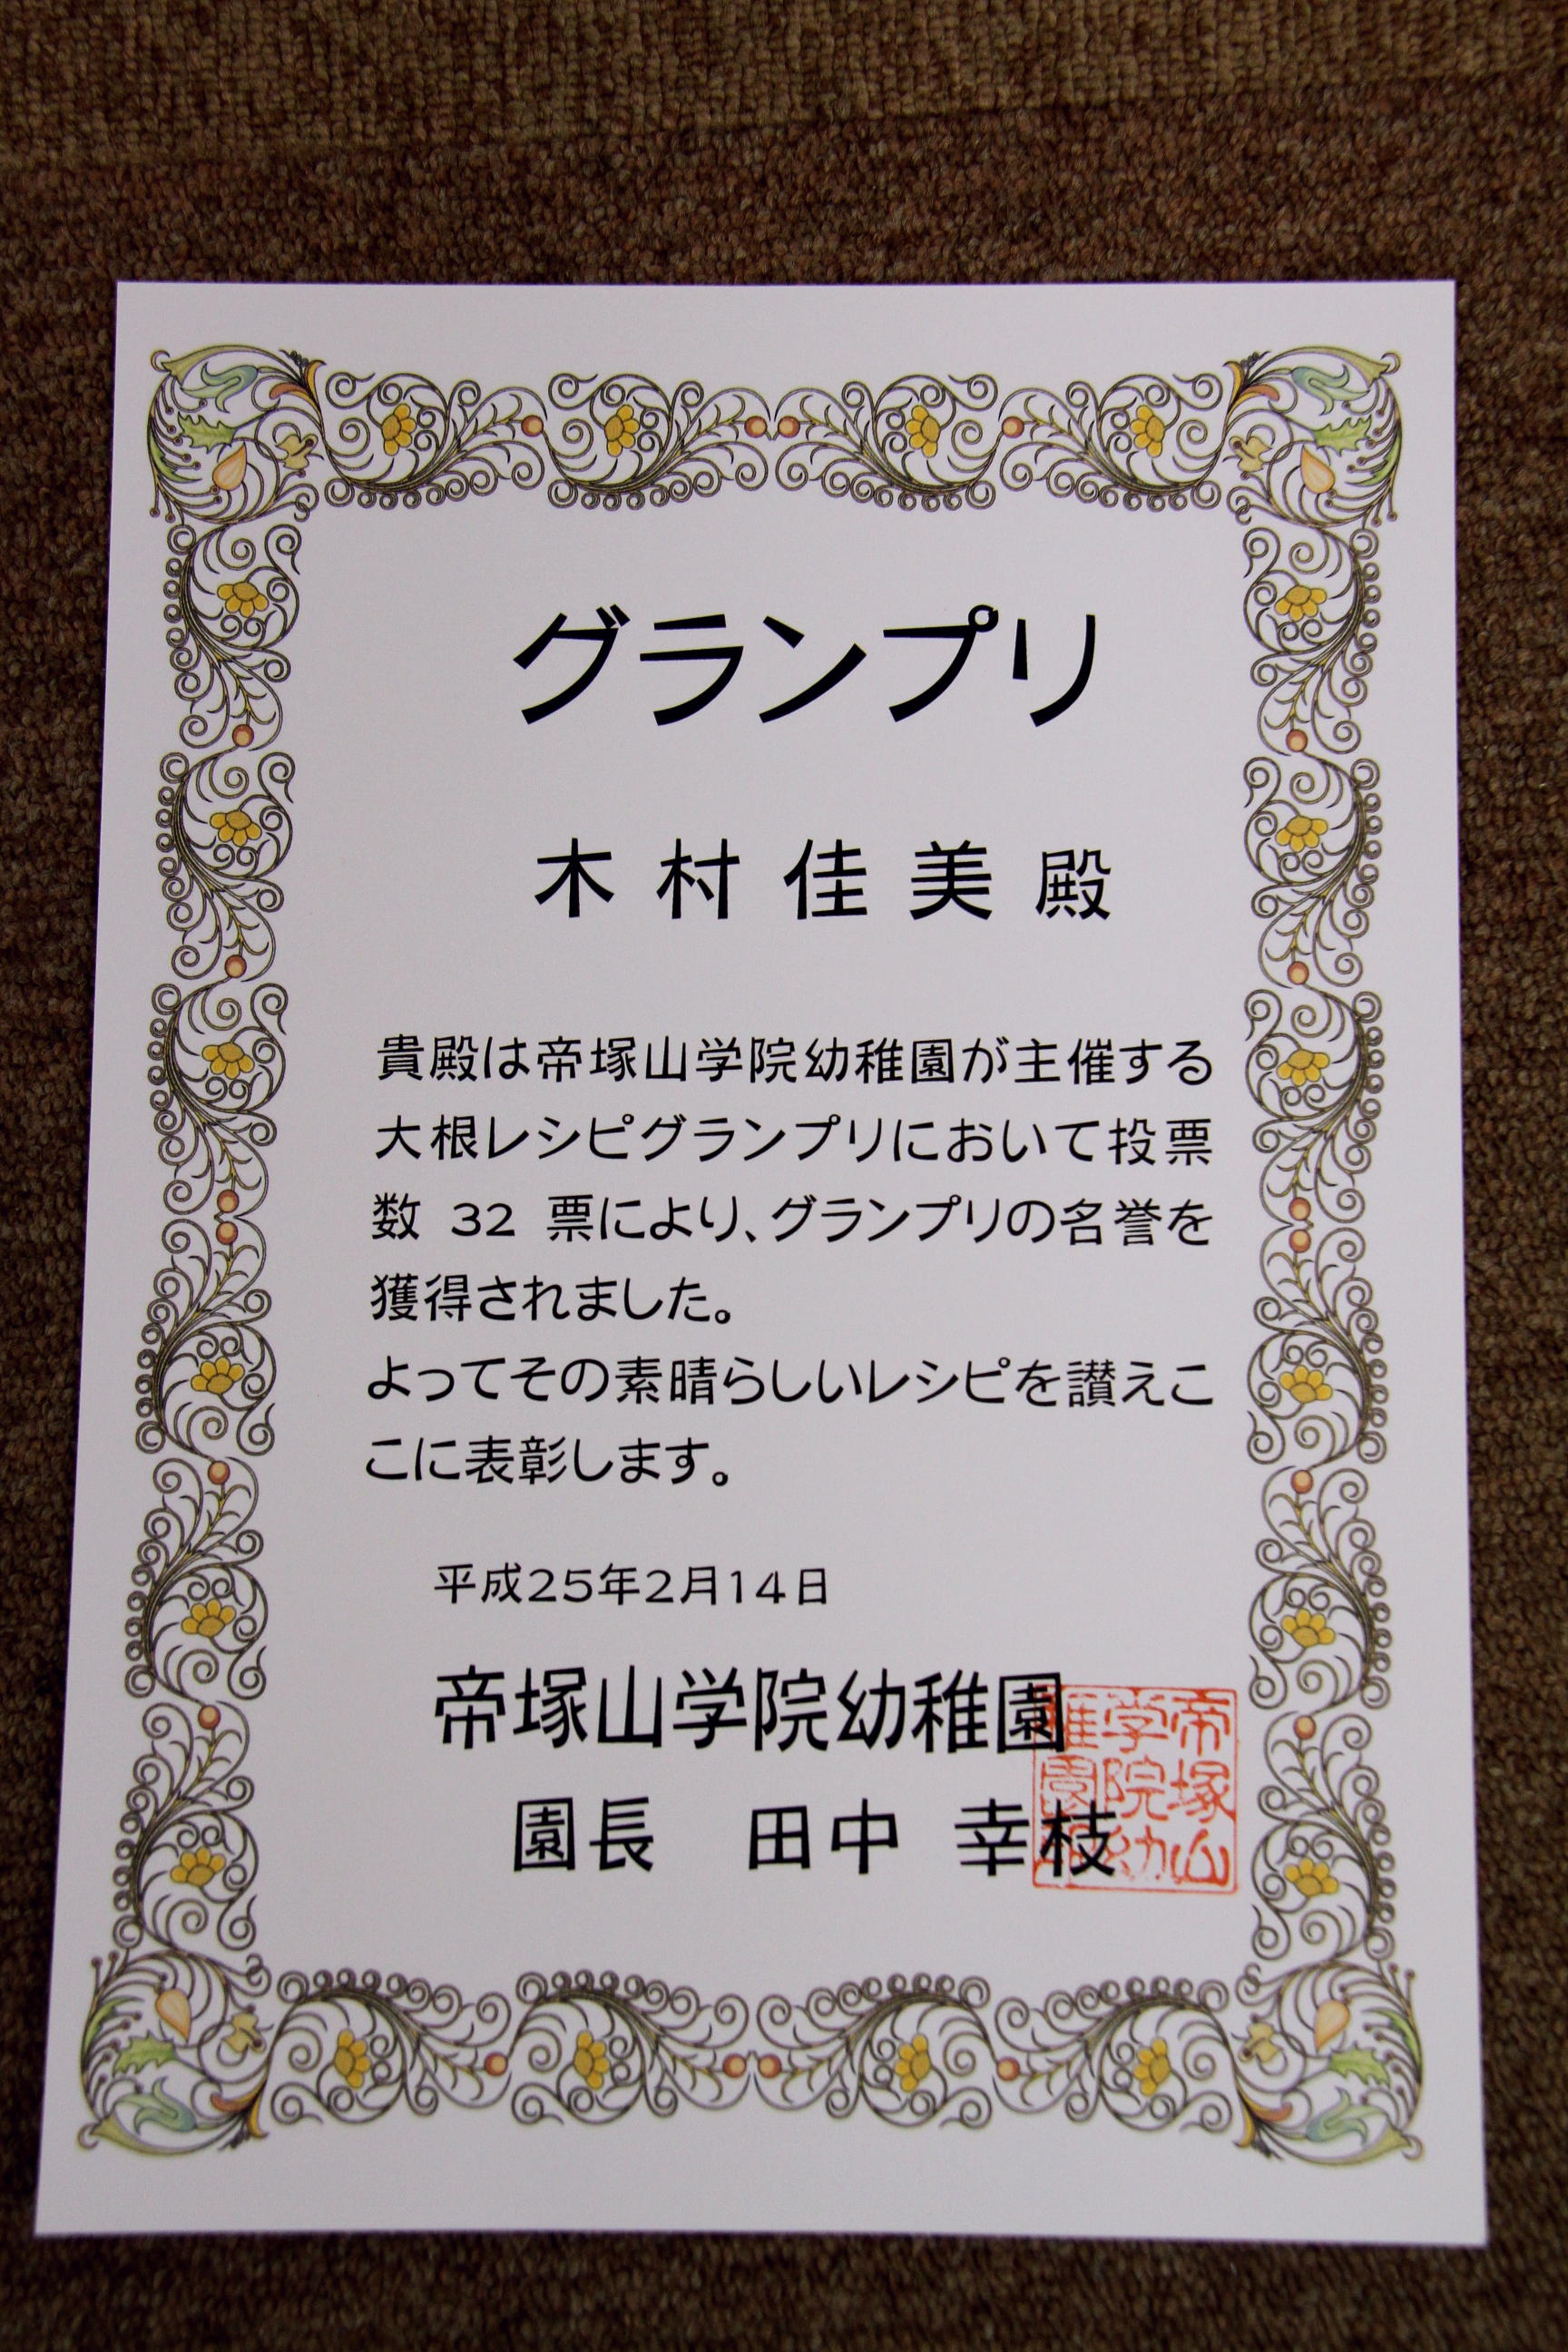 グランプリ
木村佳美殿
貴殿は帝塚山学院幼稚園が主催する
大根レシピグランプリにおいて投票
数 32 票により、グランプリの名誉を
獲得されました。
よってその素晴らしいレシピを讃えこ
こに表彰します。
平成25年2月14日
帝塚山学院幼稚園
園長 田中 幸枝
帝塚山
学院幼
稚園